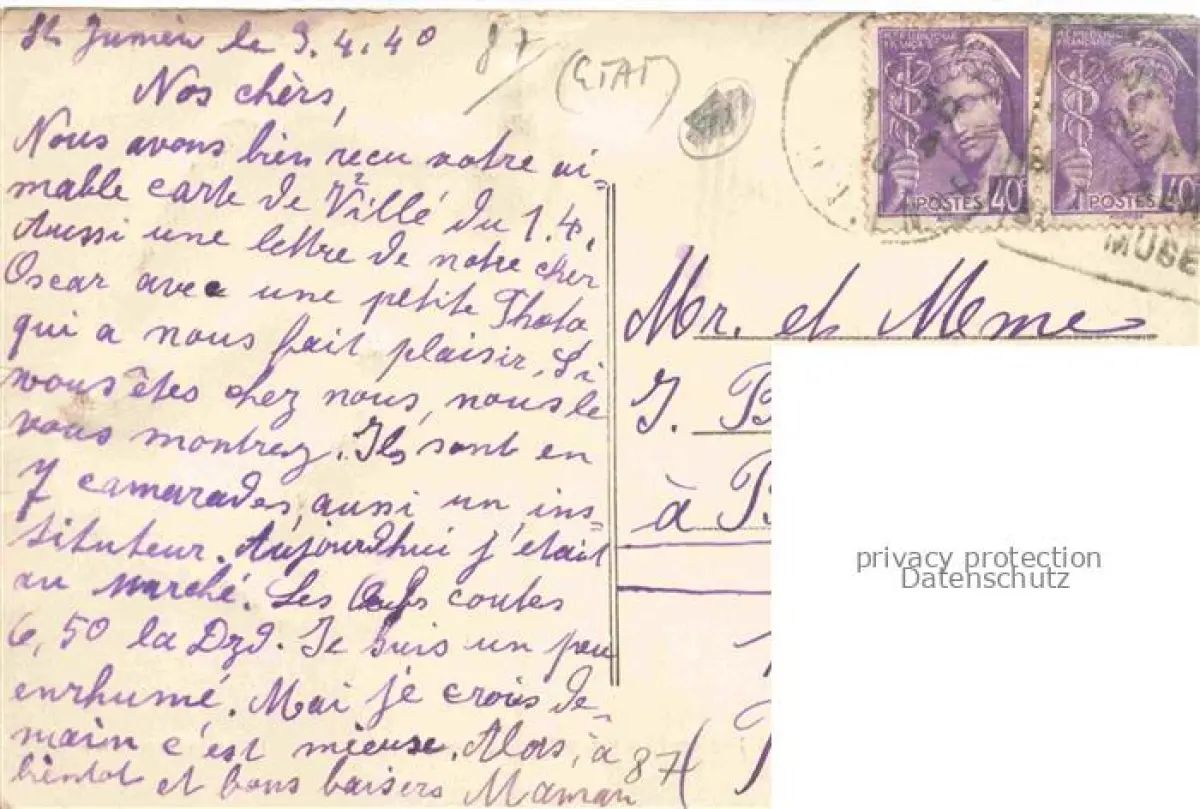 St Junien le 3.4.40
87
(ETAT)
Nos chèrs,
Nous avons bien reçu votre ai-
mable carte de Villé du 1.4.
Aussi une lettre de notre cher
Oscar avec une petite Photo
qui a nous fait plaisir. Si
vous êtes chez nous, nous le
vous montrez. Ils sont en
7 camarades, aussi un ins-
tituteur. Aujourdhui j'etait
au marché. Les Oeufs coutes
6,50 la Dzd. Je suis un peu
enrhumé. Mai je crois de-
main c'est mieuse. Alors, à
bientot et bons baisers Maman
RÉPUBLIQUE FRANÇAISE
POSTES 40c
RÉPUBLIQUE FRANÇAISE
POSTES 40
MUSE
Mr. et Mme
J. B
à B
87
privacy protection
Datenschutz